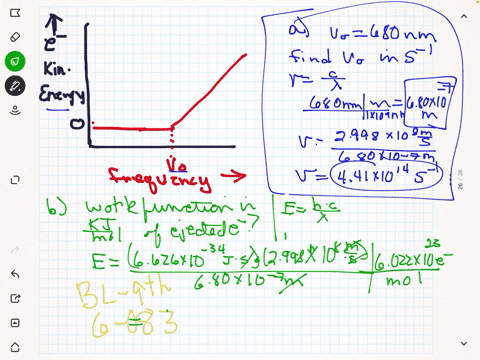 e⁻
Kin.
Energy
0
ν₀
frequency
a) ν₀ = 680 nm
find ν₀ in s⁻¹
ν = c/λ
680nm | m / 1x10⁹nm = 6.80x10⁻⁷ m
ν = 2.998 x 10⁸ m/s / 6.80 x 10⁻⁷ m
ν = 4.41 x 10¹⁴ s⁻¹
b) work function in
KJ/mol of ejected e⁻?
E = h·c/λ
E = (6.626 x 10⁻³⁴ J·s)(2.998 x 10⁸ m/s) | 6.022 x 10²³ e⁻
6.80 x 10⁻⁷ m | mol
BL-9th
6-083
=